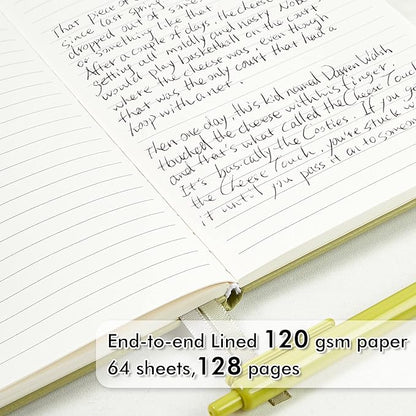 That piece of
Since last spring
dropped out of some
or something like that.
After a couple of days, the cheese
getting all moldy and nasty. Nobo
would play basketball on the court
where the cheese was, even though
that was the only court that had a
hoop with a net.
Then one day, this kid named Darren Walsh
touched the cheese with his finger,
and that's what called the Cheese Touch
It's basically the Cooties. If you g
the Cheese Touch, you're stuck w
it until you pass it on to someon
End-to-end Lined 120 gsm paper
64 sheets,128 pages